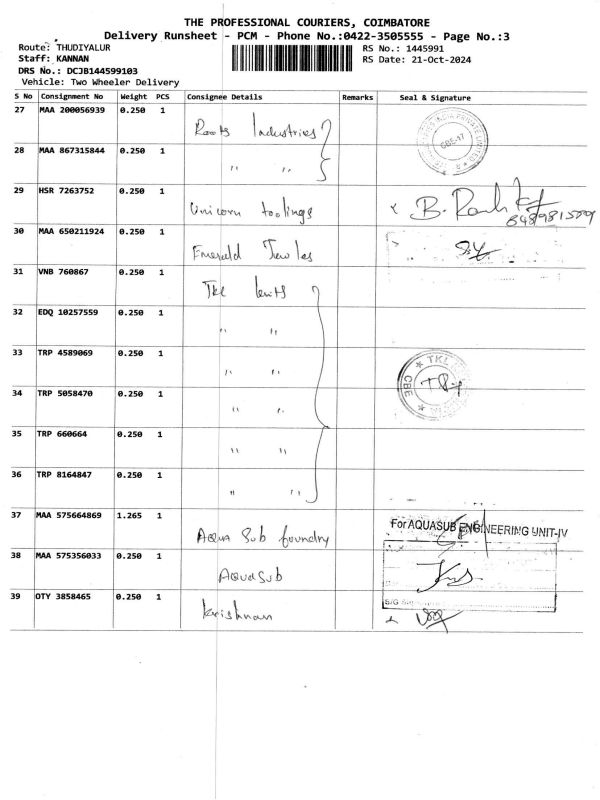 THE PROFESSIONAL COURIERS, COIMBATORE
Delivery Runsheet - PCM - Phone No.:0422-3505555 - Page No.:3
Route: THUDIYALUR
RS No.: 1445991
Staff: KANNAN
RS Date: 21-Oct-2024
DRS No.: DCJB144599103
Vehicle: Two Wheeler Delivery
S No Consignment No Weight PCS Consignee Details Remarks Seal & Signature
27 MAA 200056939 0.250 1 Roots Industries
28 MAA 867315844 0.250 1 " "
CBE-17
29 HSR 7263752 0.250 1 Unicorn toolings B.
30 MAA 650211924 0.250 1 Emerald
31 VNB 760867 0.250 1 TKL knits
32 EDQ 10257559 0.250 1 " "
33 TRP 4589069 0.250 1 " " TKL
CBE
34 TRP 5058470 0.250 1 " "
35 TRP 660664 0.250 1 " "
36 TRP 8164847 0.250 1 " "
37 MAA 575664869 1.265 1 Aqua Sub foundry For AQUASUB ENGINEERING UNIT-IV
38 MAA 575356033 0.250 1 Aquasub
39 OTY 3858465 0.250 1 krishnan